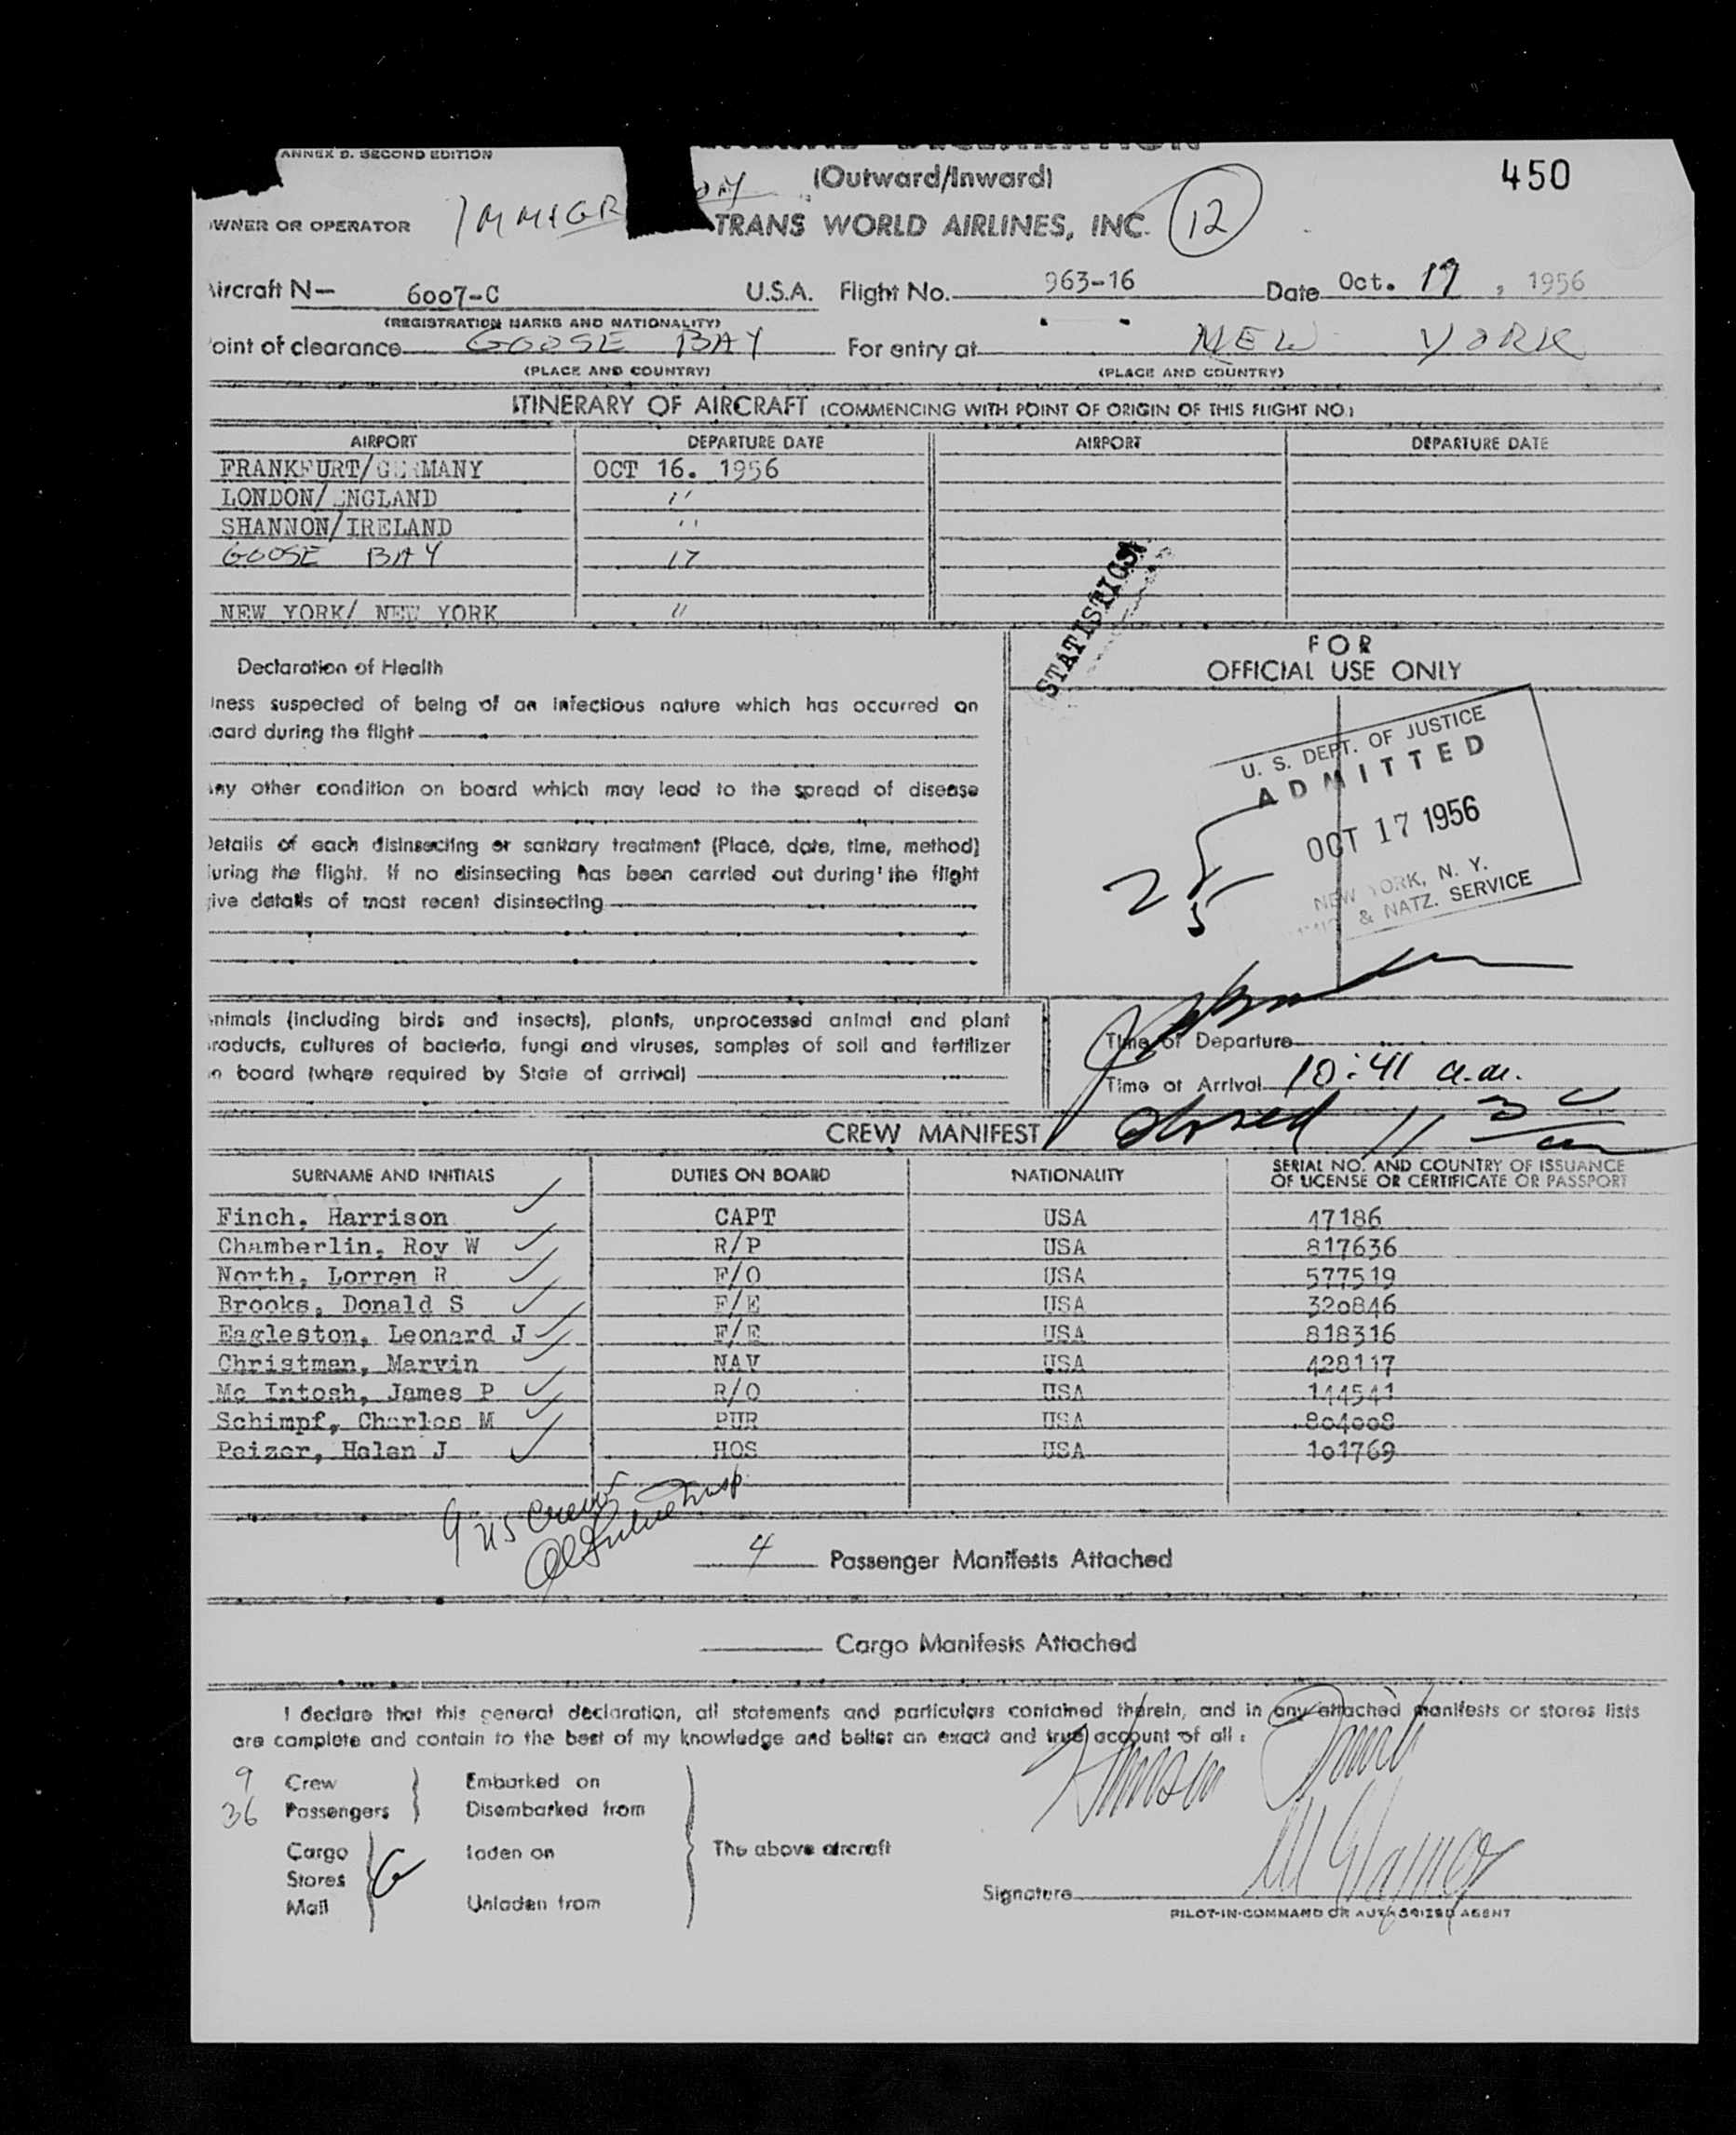 ANNEX D. SECOND EDITION
450
(Outward/Inward)
WNER OR OPERATOR IMMIGR
TRANS WORLD AIRLINES, INC. 12
Aircraft N— 6007-C U.S.A. Flight No. 963-16 Date Oct. 17, 1956
(REGISTRATION MARKS AND NATIONALITY)
oint of clearance GOOSE BAY For entry at NEW YORK
(PLACE AND COUNTRY) (PLACE AND COUNTRY)
ITINERARY OF AIRCRAFT (COMMENCING WITH POINT OF ORIGIN OF THIS FLIGHT NO.)
AIRPORT DEPARTURE DATE AIRPORT DEPARTURE DATE
FRANKFURT/GERMANY OCT 16. 1956
LONDON/ENGLAND "
SHANNON/IRELAND "
GOOSE BAY 17
NEW YORK/ NEW YORK "
STATISTICS
Declaration of Health
lness suspected of being of an infectious nature which has occurred on
oard during the flight
Any other condition on board which may lead to the spread of disease
Details of each disinsecting or sanitary treatment (Place, date, time, method)
during the flight. If no disinsecting has been carried out during the flight
give details of most recent disinsecting
FOR
OFFICIAL USE ONLY
U. S. DEPT. OF JUSTICE
ADMITTED
OCT 17 1956
NEW YORK, N. Y.
& NATZ. SERVICE
Animals (including birds and insects), plants, unprocessed animal and plant
products, cultures of bacteria, fungi and viruses, samples of soil and fertilizer
on board (where required by State of arrival)
Time of Departure
Time of Arrival 10:41 a.m.
closed 11 30
CREW MANIFEST
SURNAME AND INITIALS DUTIES ON BOARD NATIONALITY SERIAL NO. AND COUNTRY OF ISSUANCE
OF LICENSE OR CERTIFICATE OR PASSPORT
Finch, Harrison CAPT USA 47186
Chamberlin, Roy W R/P USA 817636
North, Lorren R F/O USA 577519
Brooks, Donald S F/E USA 320846
Eagleston, Leonard J F/E USA 818316
Christman, Marvin NAV USA 428117
Mc Intosh, James P R/O USA 144541
Schimpf, Charles M PUR USA 804008
Peizer, Helen J HOS USA 101769
9 US Crew
4 Passenger Manifests Attached
Cargo Manifests Attached
I declare that this general declaration, all statements and particulars contained therein, and in any attached manifests or stores lists
are complete and contain to the best of my knowledge and belief an exact and true account of all :
9 Crew Embarked on
36 Passengers Disembarked from
Cargo laden on The above aircraft
Stores
Mail Unladen from
Signature
PILOT-IN-COMMAND OR AUTHORIZED AGENT